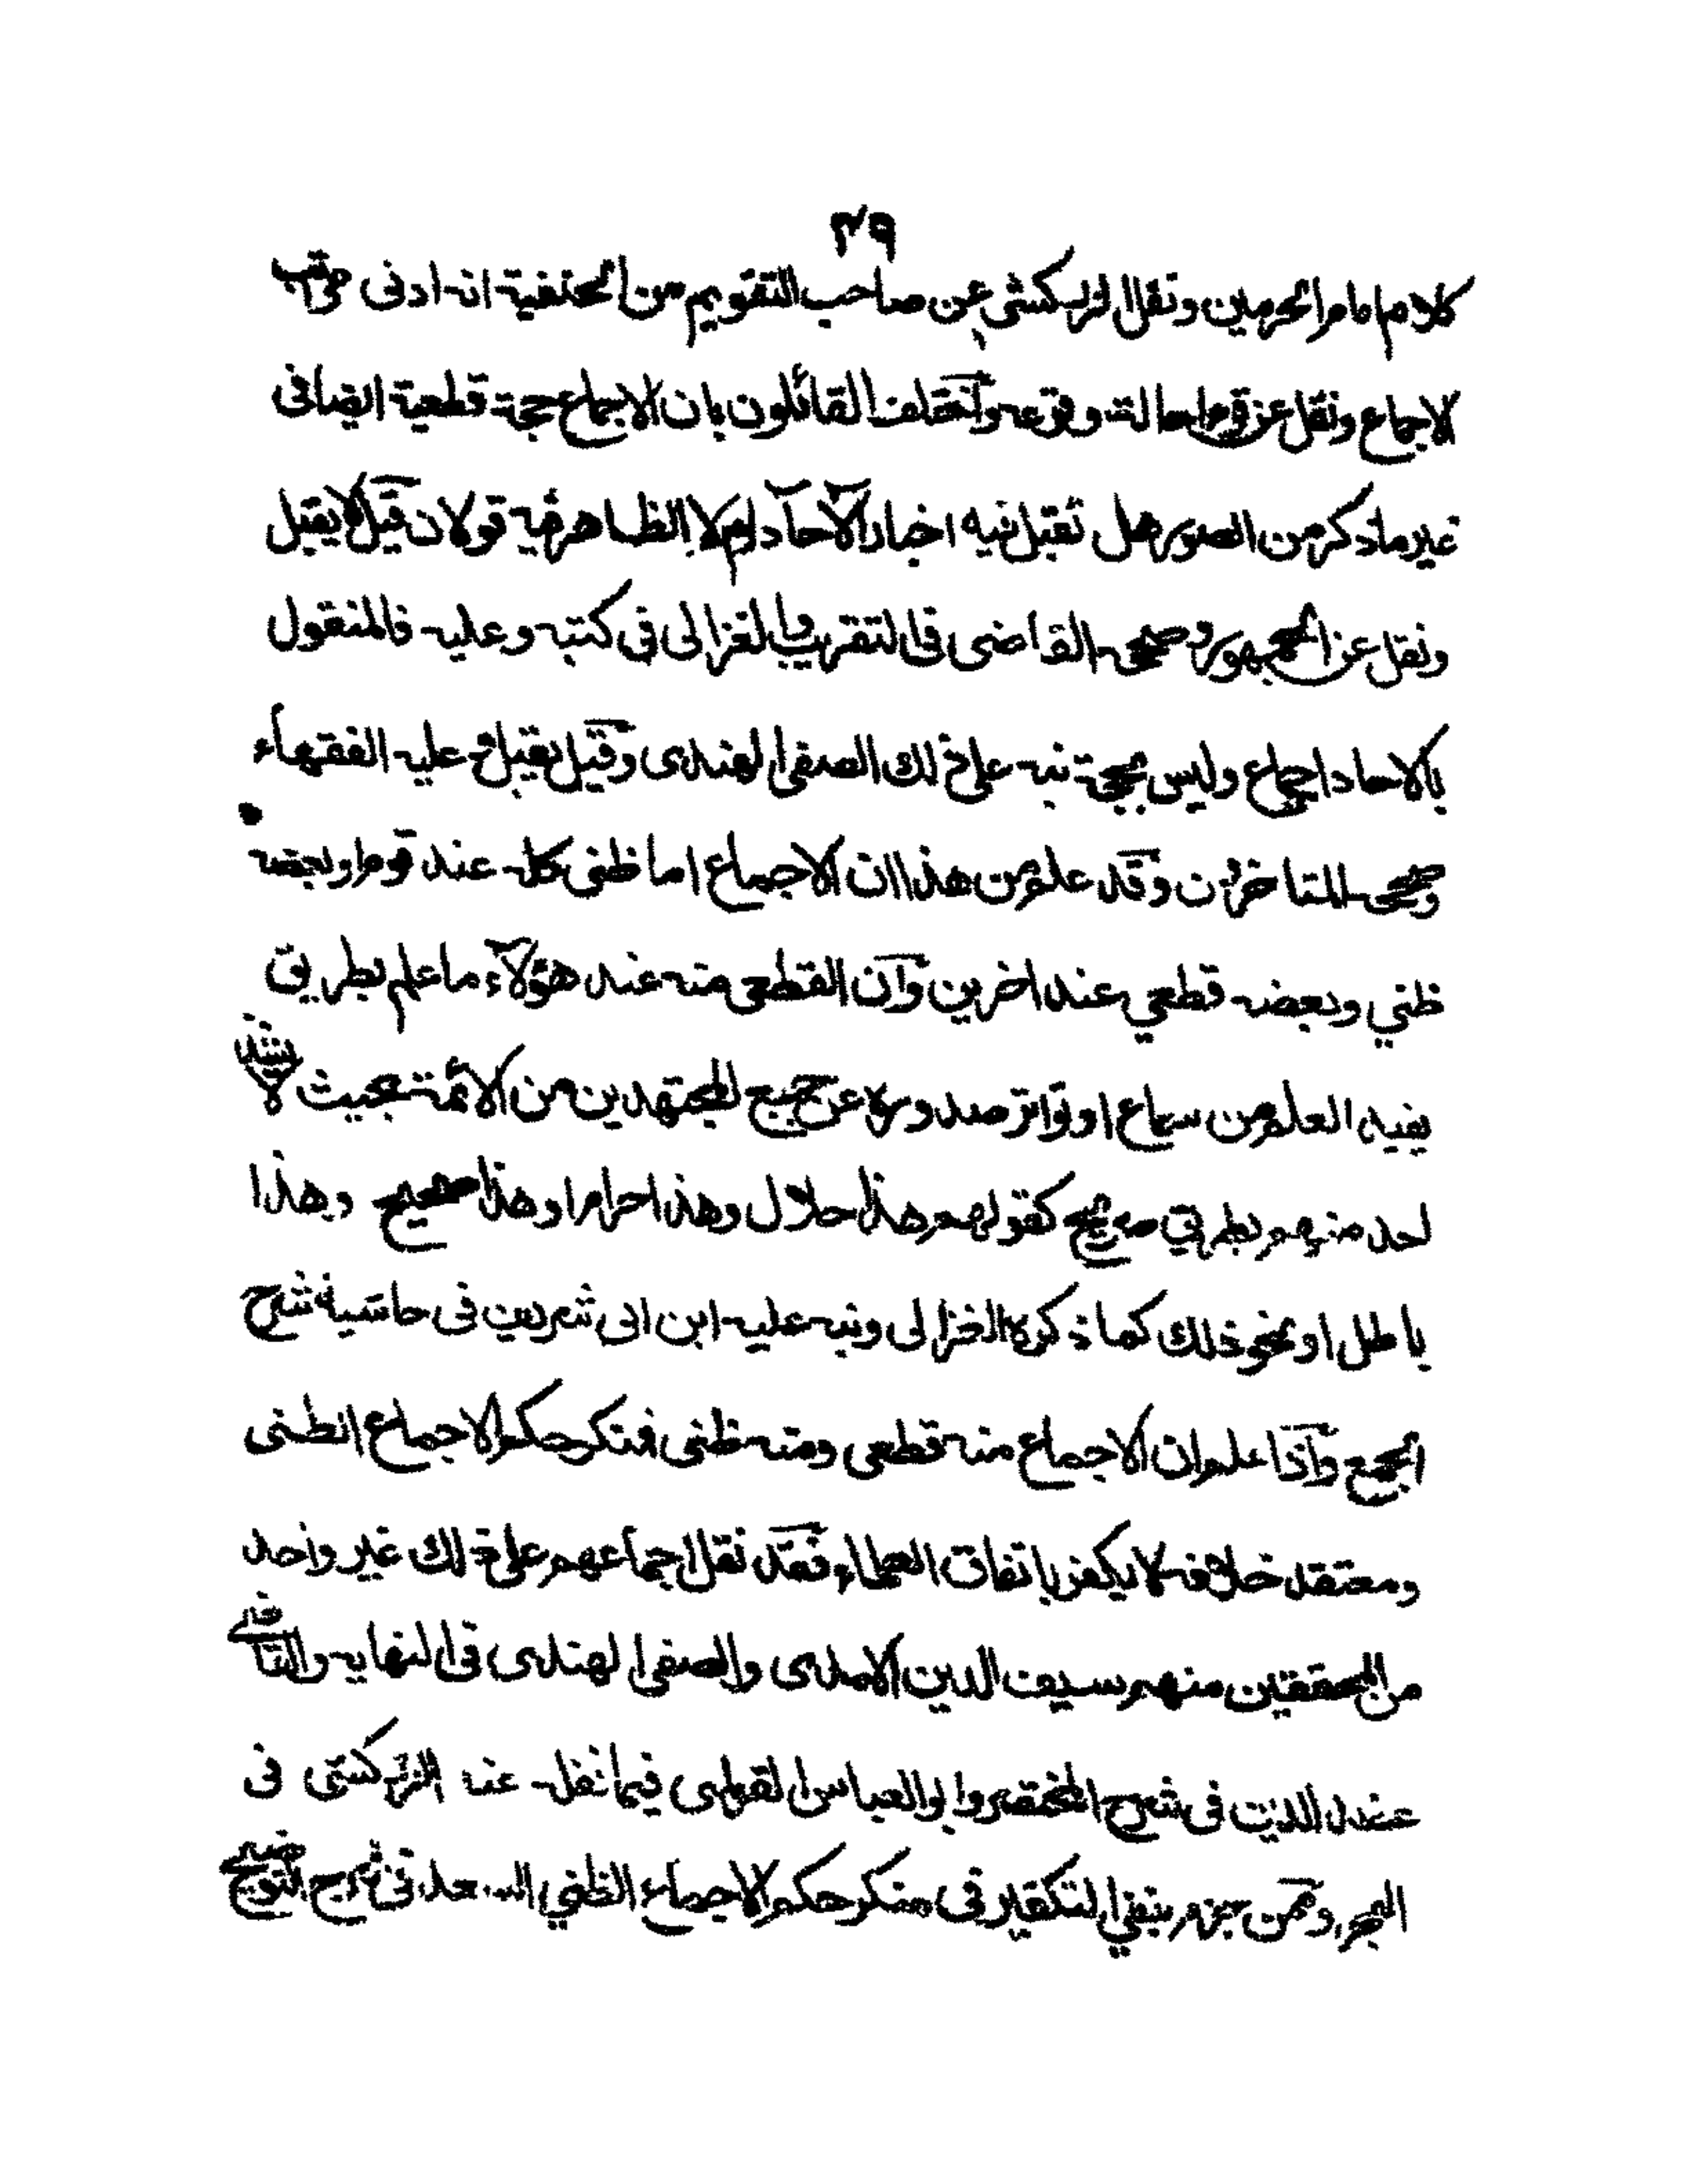 ٢٩
كلام امام الحرمين ونقل الزركشى عن صاحب التقويم من الحنفية انه ادنى مراتب
الاجماع ونقل عن قوم احالة وقوعه واختلف القائلون بان الاجماع حجة قطعية ايضا فى
غير ما ذكر من الصور هل تقبل فيه اخبار الآحاد ام لا الظاهرفيه قولان قيل لا يقبل
ونقل عن الجمهور وصححه القاضى فى التقريب والغزالى فى كتبه وعليه فالمنقول
بالاحاد اجماع وليس بحجة نبه على ذلك الصفى الهندى وقيل يقبل عليه الفقهاء
وصححه المتاخرون وقد علم من هذا ان الاجماع اما ظنى كله عند قوم او بعضه
ظني وبعضه قطعي عند اخرين وان القطعى منه عند هؤلاء ما علم بطريق
يفيد العلم من سماع او تواتر صدوره عن جميع المجتهدين من الائمة بحيث لا يشذ
احد منهم بطريق صريح كقولهم هذا حلال وهذا حرام او هذا صحيح وهذا
باطل او نحو ذلك كما ذكره الغزالى ونبه عليه ابن ابى شريف فى حاشية شرح
الجمع واذا علم ان الاجماع منه قطعى ومنه ظنى فمنكر حكم الاجماع الظنى
ومعتقد خلافه لا يكفر باتفاق العلماء فقد نقل اجماعهم على ذلك غير واحد
من المحققين منهم سيف الدين الامدى والصفى الهندى فى النهاية والقاضى
عضد الدين فى شرح المختصر وابو العباس القرطبى فيما نقله عنه الزركشى فى
البحر وممن جزم بنفى التكفير فى منكر حكم الاجماع الظني السعد فى شرح التوضيح